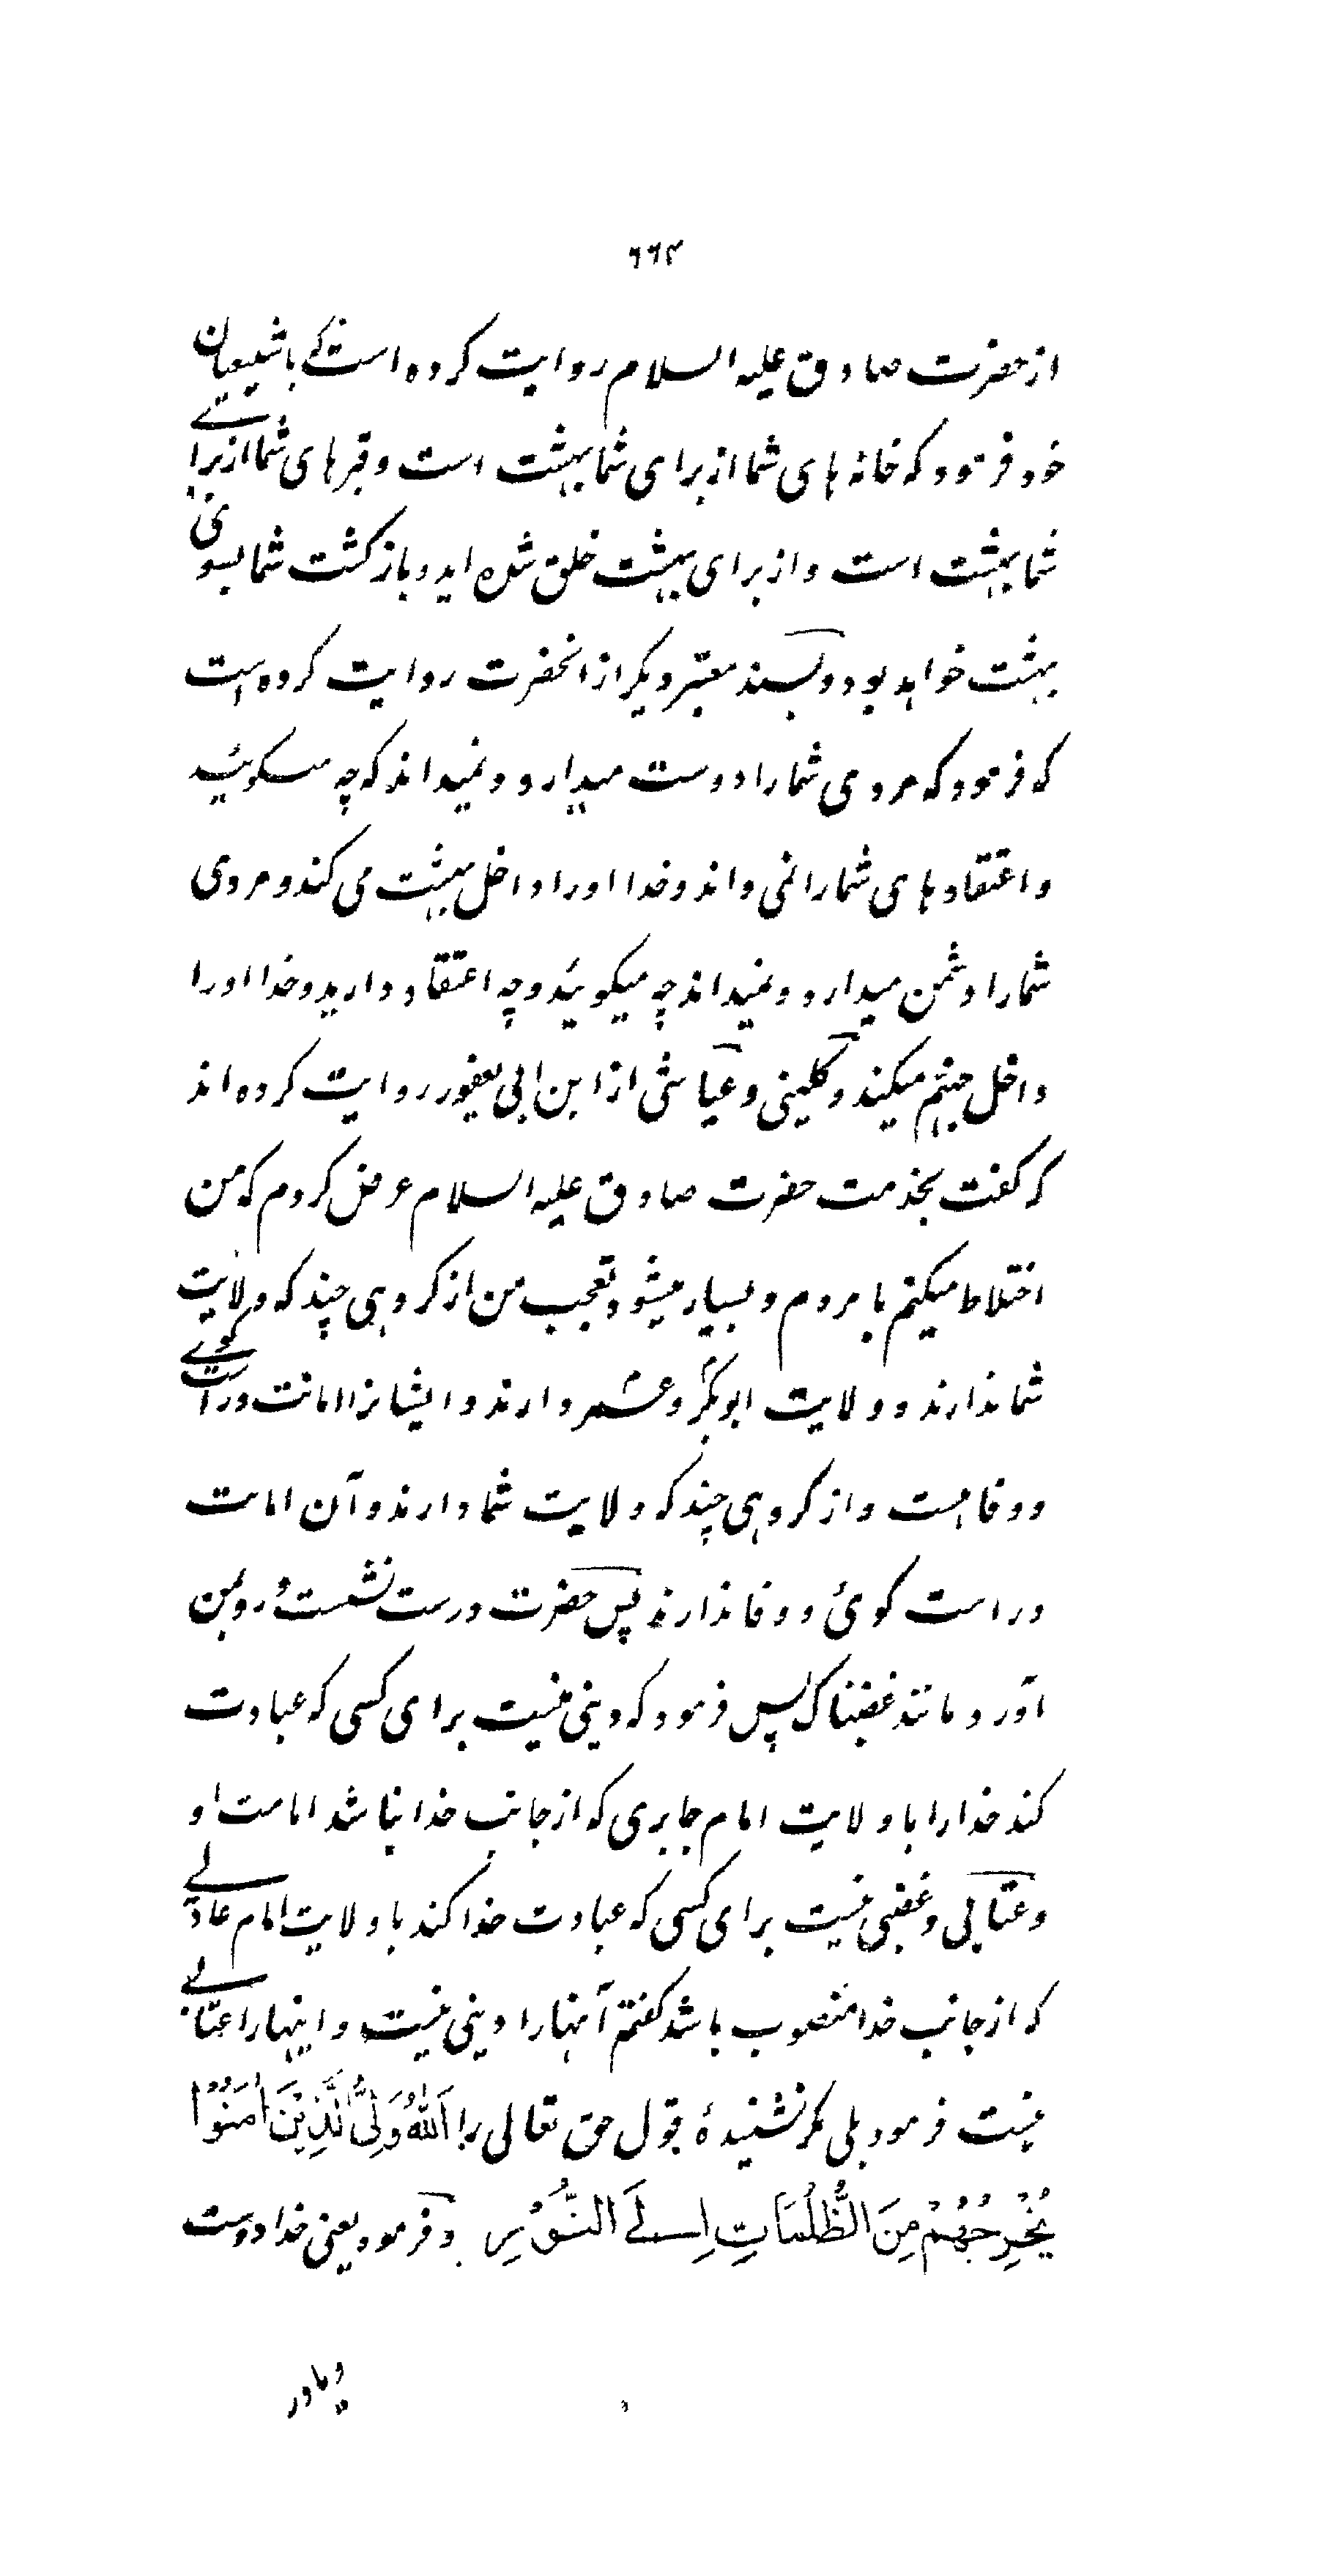 ٦٦٤
از حضرت صادق علیه السلام روایت کرده است که با شیعیان
خود فرمود که خانه های شما از برای شما بهشت است و قبرهای شما از برای
شما بهشت است و از برای بهشت خلق شده اید و بازگشت شما بسوی
بهشت خواهد بود و بسند معتبر دیگر از انحضرت روایت کرده است
که فرمود که مردی شما را دوست میدارد و نمیداند که چه میگوئید
و اعتقادهای شما را نمی داند و خدا او را داخل بهشت می کند و مردی
شما را دشمن میدارد و نمیداند چه میگوئید و چه اعتقاد دارید و خدا او را
داخل جهنم میکند و کلینی و عیاشی از ابن ابی یعفور روایت کرده اند
که گفت بخدمت حضرت صادق علیه السلام عرض کردم که من
اختلاط میکنم با مردم و بسیار میشود تعجب من از گروهی چند که ولایت
شما ندارند و ولایت ابوبکر و عمر دارند و ایشانرا امانت و راست گوئے
و وفا هست و از گروهی چند که ولایت شما دارند و آن امانت
و راست گوئ و وفا ندارند پس حضرت درست نشست و رو بمن
آورد مانند غضبناک پس فرمود که دینی نیست برای کسی که عبادت
کند خدا را با ولایت امام جابری که از جانب خدا نباشد امامت او
و عتابی و غضبی نیست برای کسی که عبادت خدا کند با ولایت امام عادلے
که از جانب خدا منصوب باشد گفتم آنها را دینی نیست و اینها را عتابے
نیست فرمود بلی مگر نشنیدهٔ قول حق تعالی را اَللّٰهُ وَلِیُّ الَّذِیْنَ اٰمَنُوْا
یُخْرِجُهُمْ مِنَ الظُّلُمَاتِ اِلَے النُّوْرِ و فرمود یعنی خدا دوست
و یاور